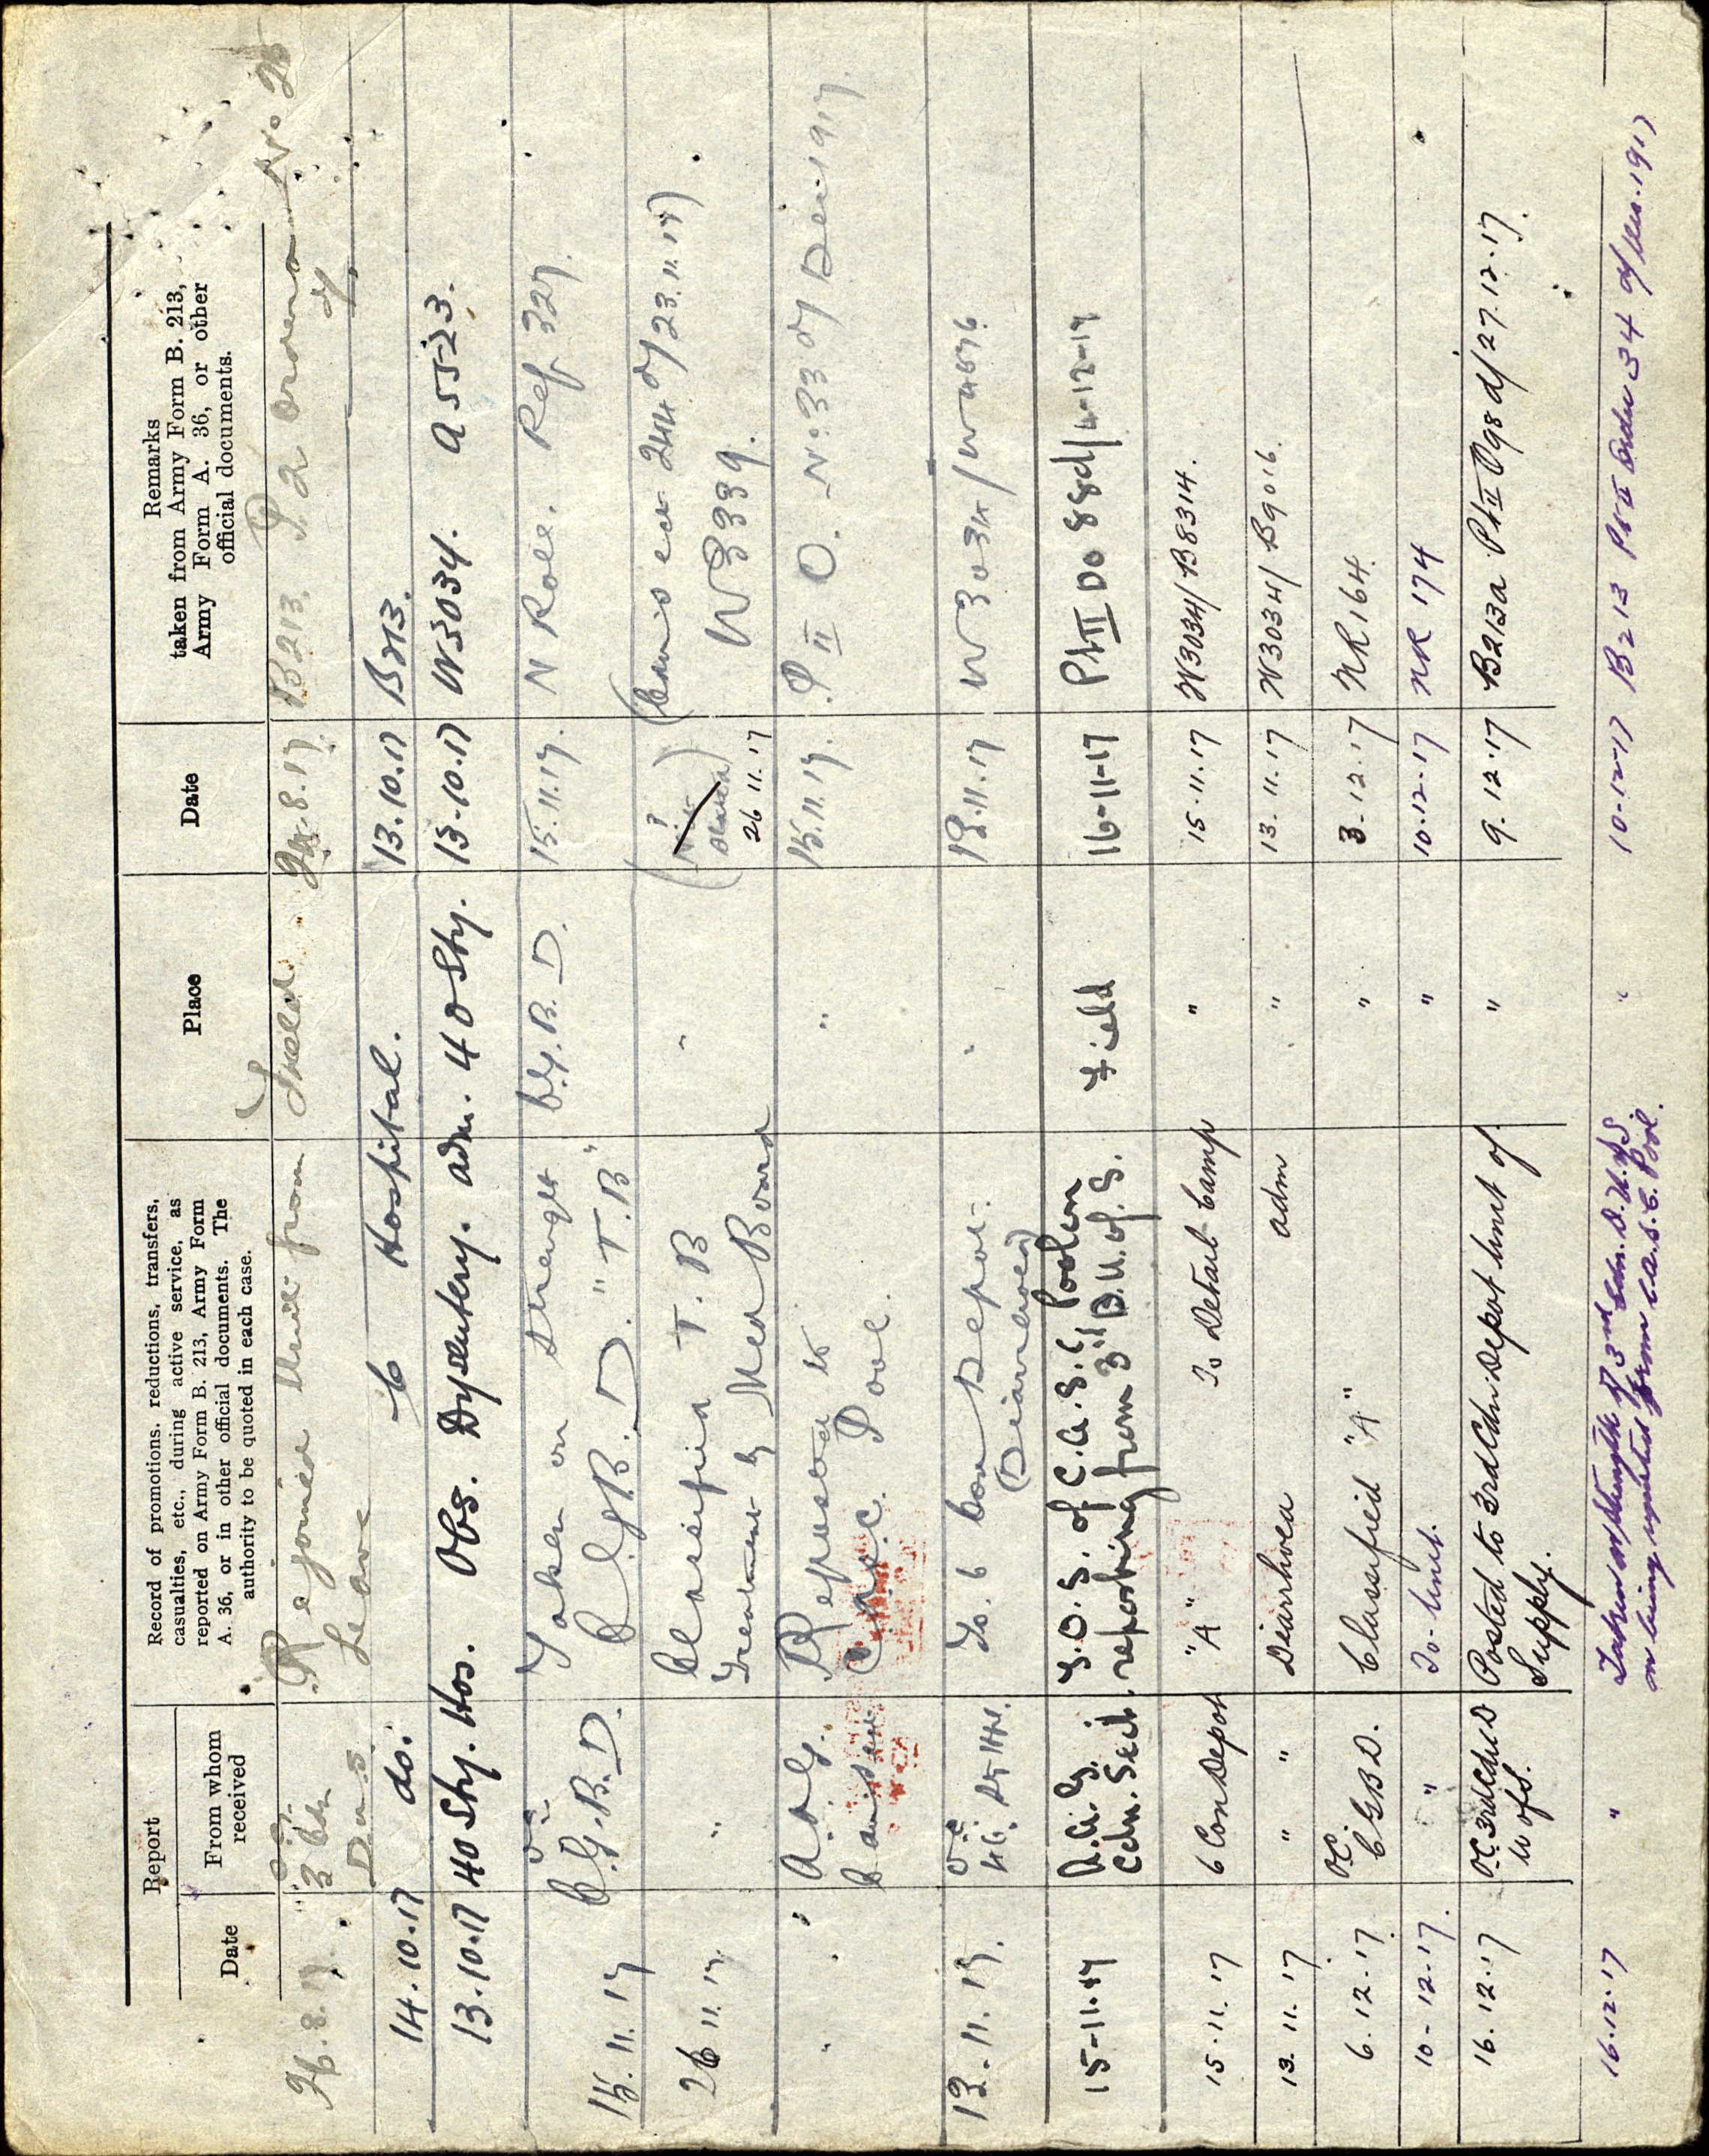 Report
Date
From whom received
Record of promotions. reductions, transfers,
casualties, etc., during active service, as
reported on Army Form B. 213, Army Form
A. 36, or in other official documents. The
authority to be quoted in each case.
Place
Date
Remarks
taken from Army Form B. 213,
Army Form A. 36, or other
official documents.
8.17 3 Rejoined Unit from Field 8.17 B213 P 2 Orders No 25
Leave
14.10.17 do. To Hospital. 13.10.17 B213.
13.10.17 40 Sty. Hos. Obs. Dysentery. adm. 40 Sty. 13.10.17 W3034. A5523.
15.11.17 C.G.B.D. Taken on Strength C.G.B.D. 15.11.17. N Roll. Ref 327.
C.G.B.D. "T.B"
26 11.17 " Classified T.B " 26 11.17 244 d/ 23.11.17)
Treatment by Med Board W3339.
" " A.A.G. Reported to " 15.11.17. P II O. No 33 d/ Dec 1917
Canadian C.A.S.C. Pool.
13.11.17. To. 6 Con Depot. " 13.11.17 W3034/W4576
(Diarrhoea)
15-11-17 A.A.G. T.O.S. of C.A.S.C. Pool on Field 16-11-17 Pt II DO 88d/4-12-17
Cdn. Sect. reporting from 3rd D.U. of S.
15.11.17 6 Con Depot "A" To Detail Camp " 15.11.17 W3034/B8314.
13.11.17 " " Diarrhoea adm " 13.11.17 W3034/B9016.
6.12.17. OC. CGBD. Classified "A" " 3.12.17 NR164.
10-12-17. " To Unit. " 10.12.17 NR 174
16.12.17 OC. 3rd Cdn D Posted to 3rd Cdn Depot Unit of " 9.12.17 B213a Pt II O98 d/27.12.17.
U of S. Supply.
16.12.17 " Taken on strength of 3rd Cdn. D.U. of S. " 10-12-17 B213 Pt II Order 34 d/Dec. 1917
on being posted from C.A.S.C. Pool.